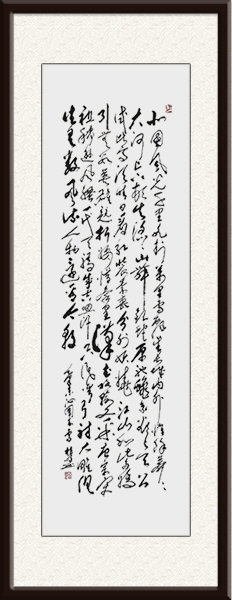 北国风光千里冰封万里雪飘望长城内外惟馀莽莽
大河上下顿失滔滔山舞银蛇原驰蜡象欲与天公
试比高须晴日看红装素裹分外妖娆江山如此多娇
引无数英雄竞折腰惜秦皇汉武略输文采唐宗宋
祖稍逊风骚一代天骄成吉思汗只识弯弓射大雕俱
往矣数风流人物还看今朝